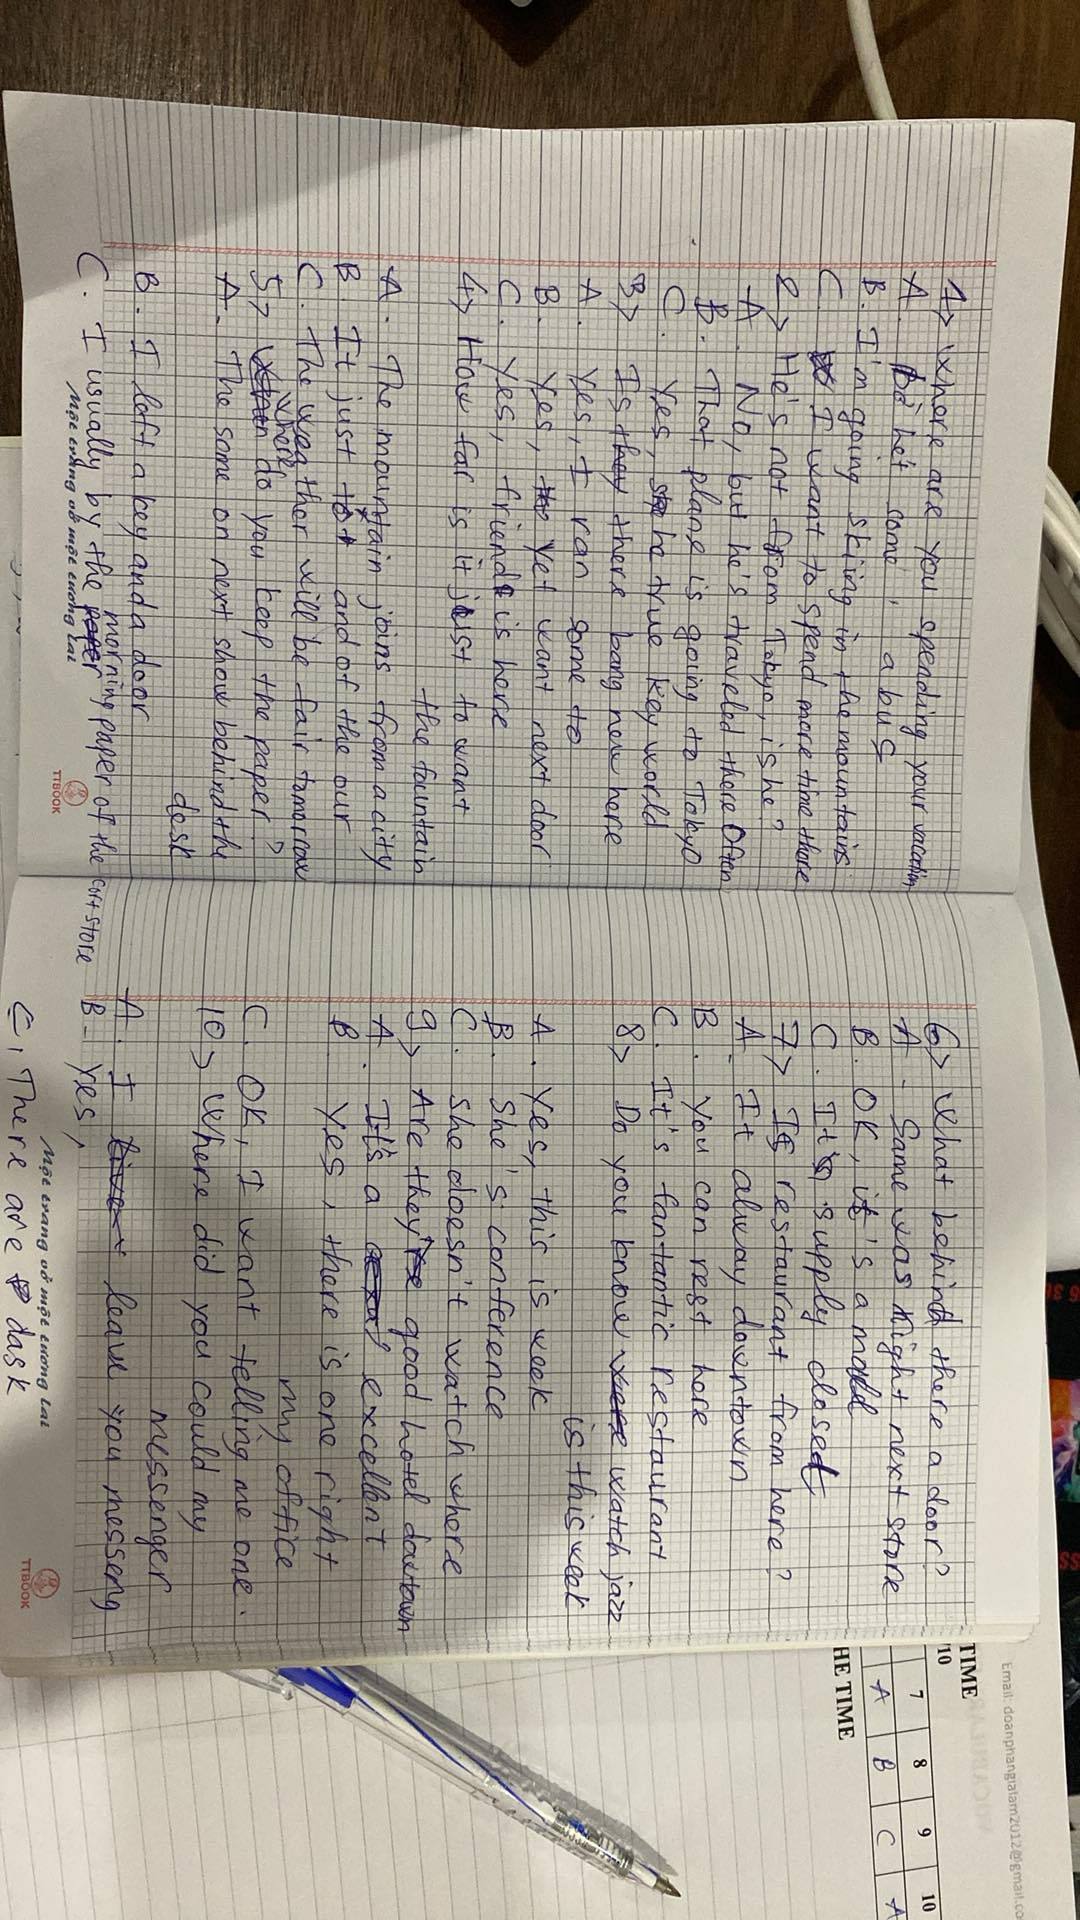 1> Where are you spending your vacation
A. het some a bus
B. I'm going skiing in the mountains
C. I want to spend more time there
2> He's not from Tokyo, is he?
A. No, but he's traveled there Often
B. That plane is going to Tokyo
C. Yes, he true key world
3> Is they there bang new here
A. Yes, I ran some to
B. Yes, yet want next door
C. Yes, friend is here
4> How far is it just to want
the fountain
A. The mountain joins from a city
B. It just to and of the our
C. The weather will be fair tomorrow
5> where do you keep the paper?
A. The some on next show behind the
desk
B. I left a key and a door
C. I usually by the morning paper of the cort store
Một trang vở một tương lai
TTBOOK
6> What behind there a door?
A. Same was right next store
B. OK, it's a mall
C. It's supply closet
7> Is restaurant from here?
A. It alway downtown
B. You can rest here
C. It's fantantic restaurant
8> Do you know watch jazz
is this week
A. Yes, this is week
B. She's conference
C. she doesn't watch where
9> Are they're good hotel dowtown
A. It's a excellent
B. Yes, there is one right
my office
C. OK, I want telling me one.
10> Where did you could my
messenger
A. I leave you messeng
B- Yes,
Một trang vở một tương lai
TTBOOK
C, There are dask
Email: doanphangialam2012@gmail.co
TIME
/10
7 8 9 10
A B C A
HE TIME